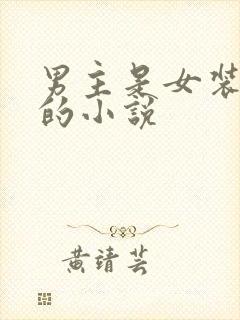 男主是女装
的小说
黄靖芸